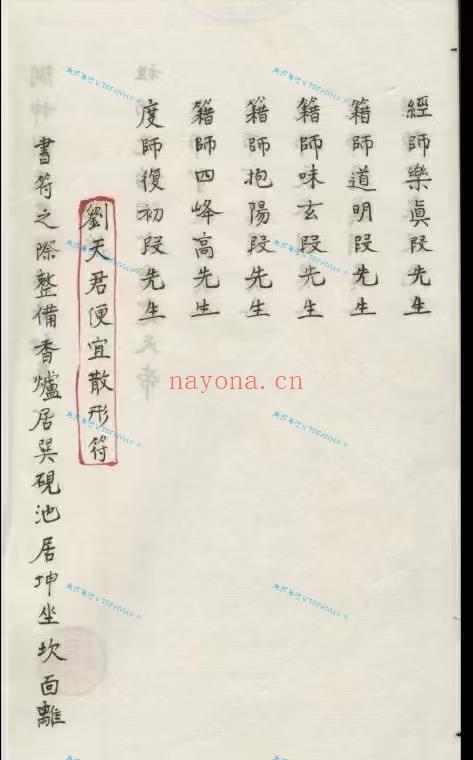 經師樂眞段先生
籍師道明段先生
籍師味玄段先生
籍師抱陽段先生
籍師四峰高先生
度師復初段先生
劉天君便宜散形符
書符之際整備香爐居巽硯池居坤坐坎面離
nayona.cn